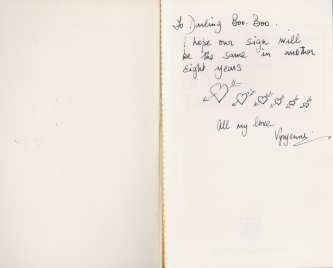 To Darling Boo-Boo.
I hope our sign will
be the same in another
eight years
All my love